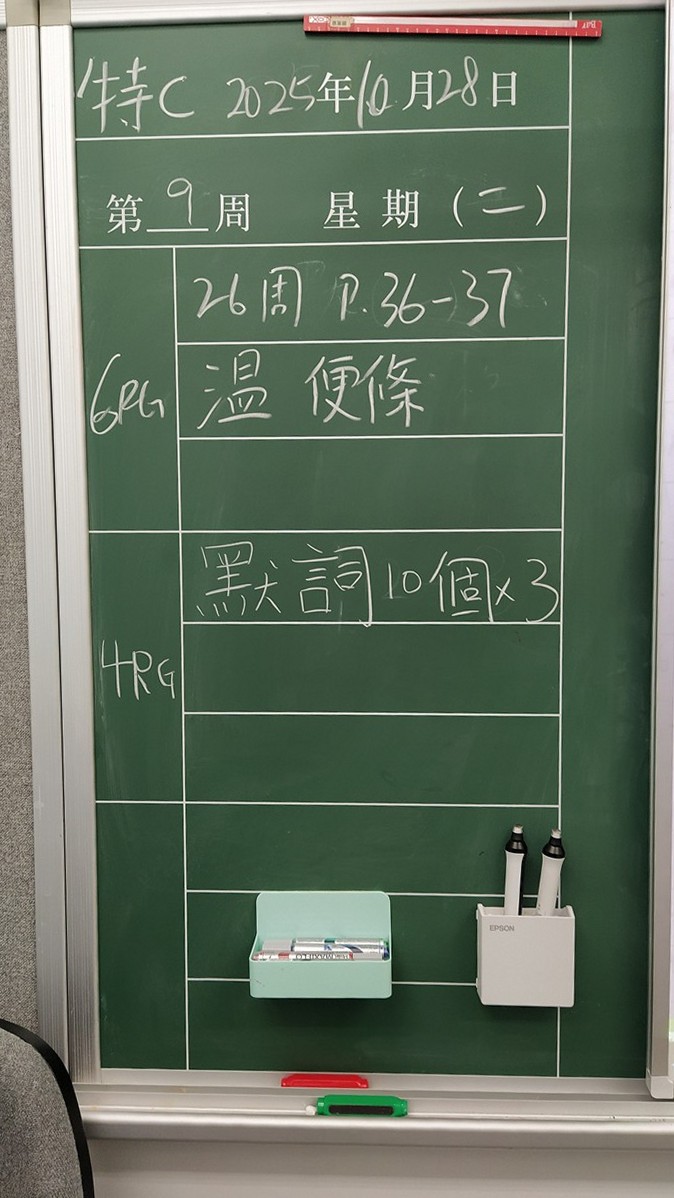 特C 2025年10月28日
第9周 星期(二)
26周 P.36-37
6RG
温 便條
默詞10個x3
4RG
EPSON